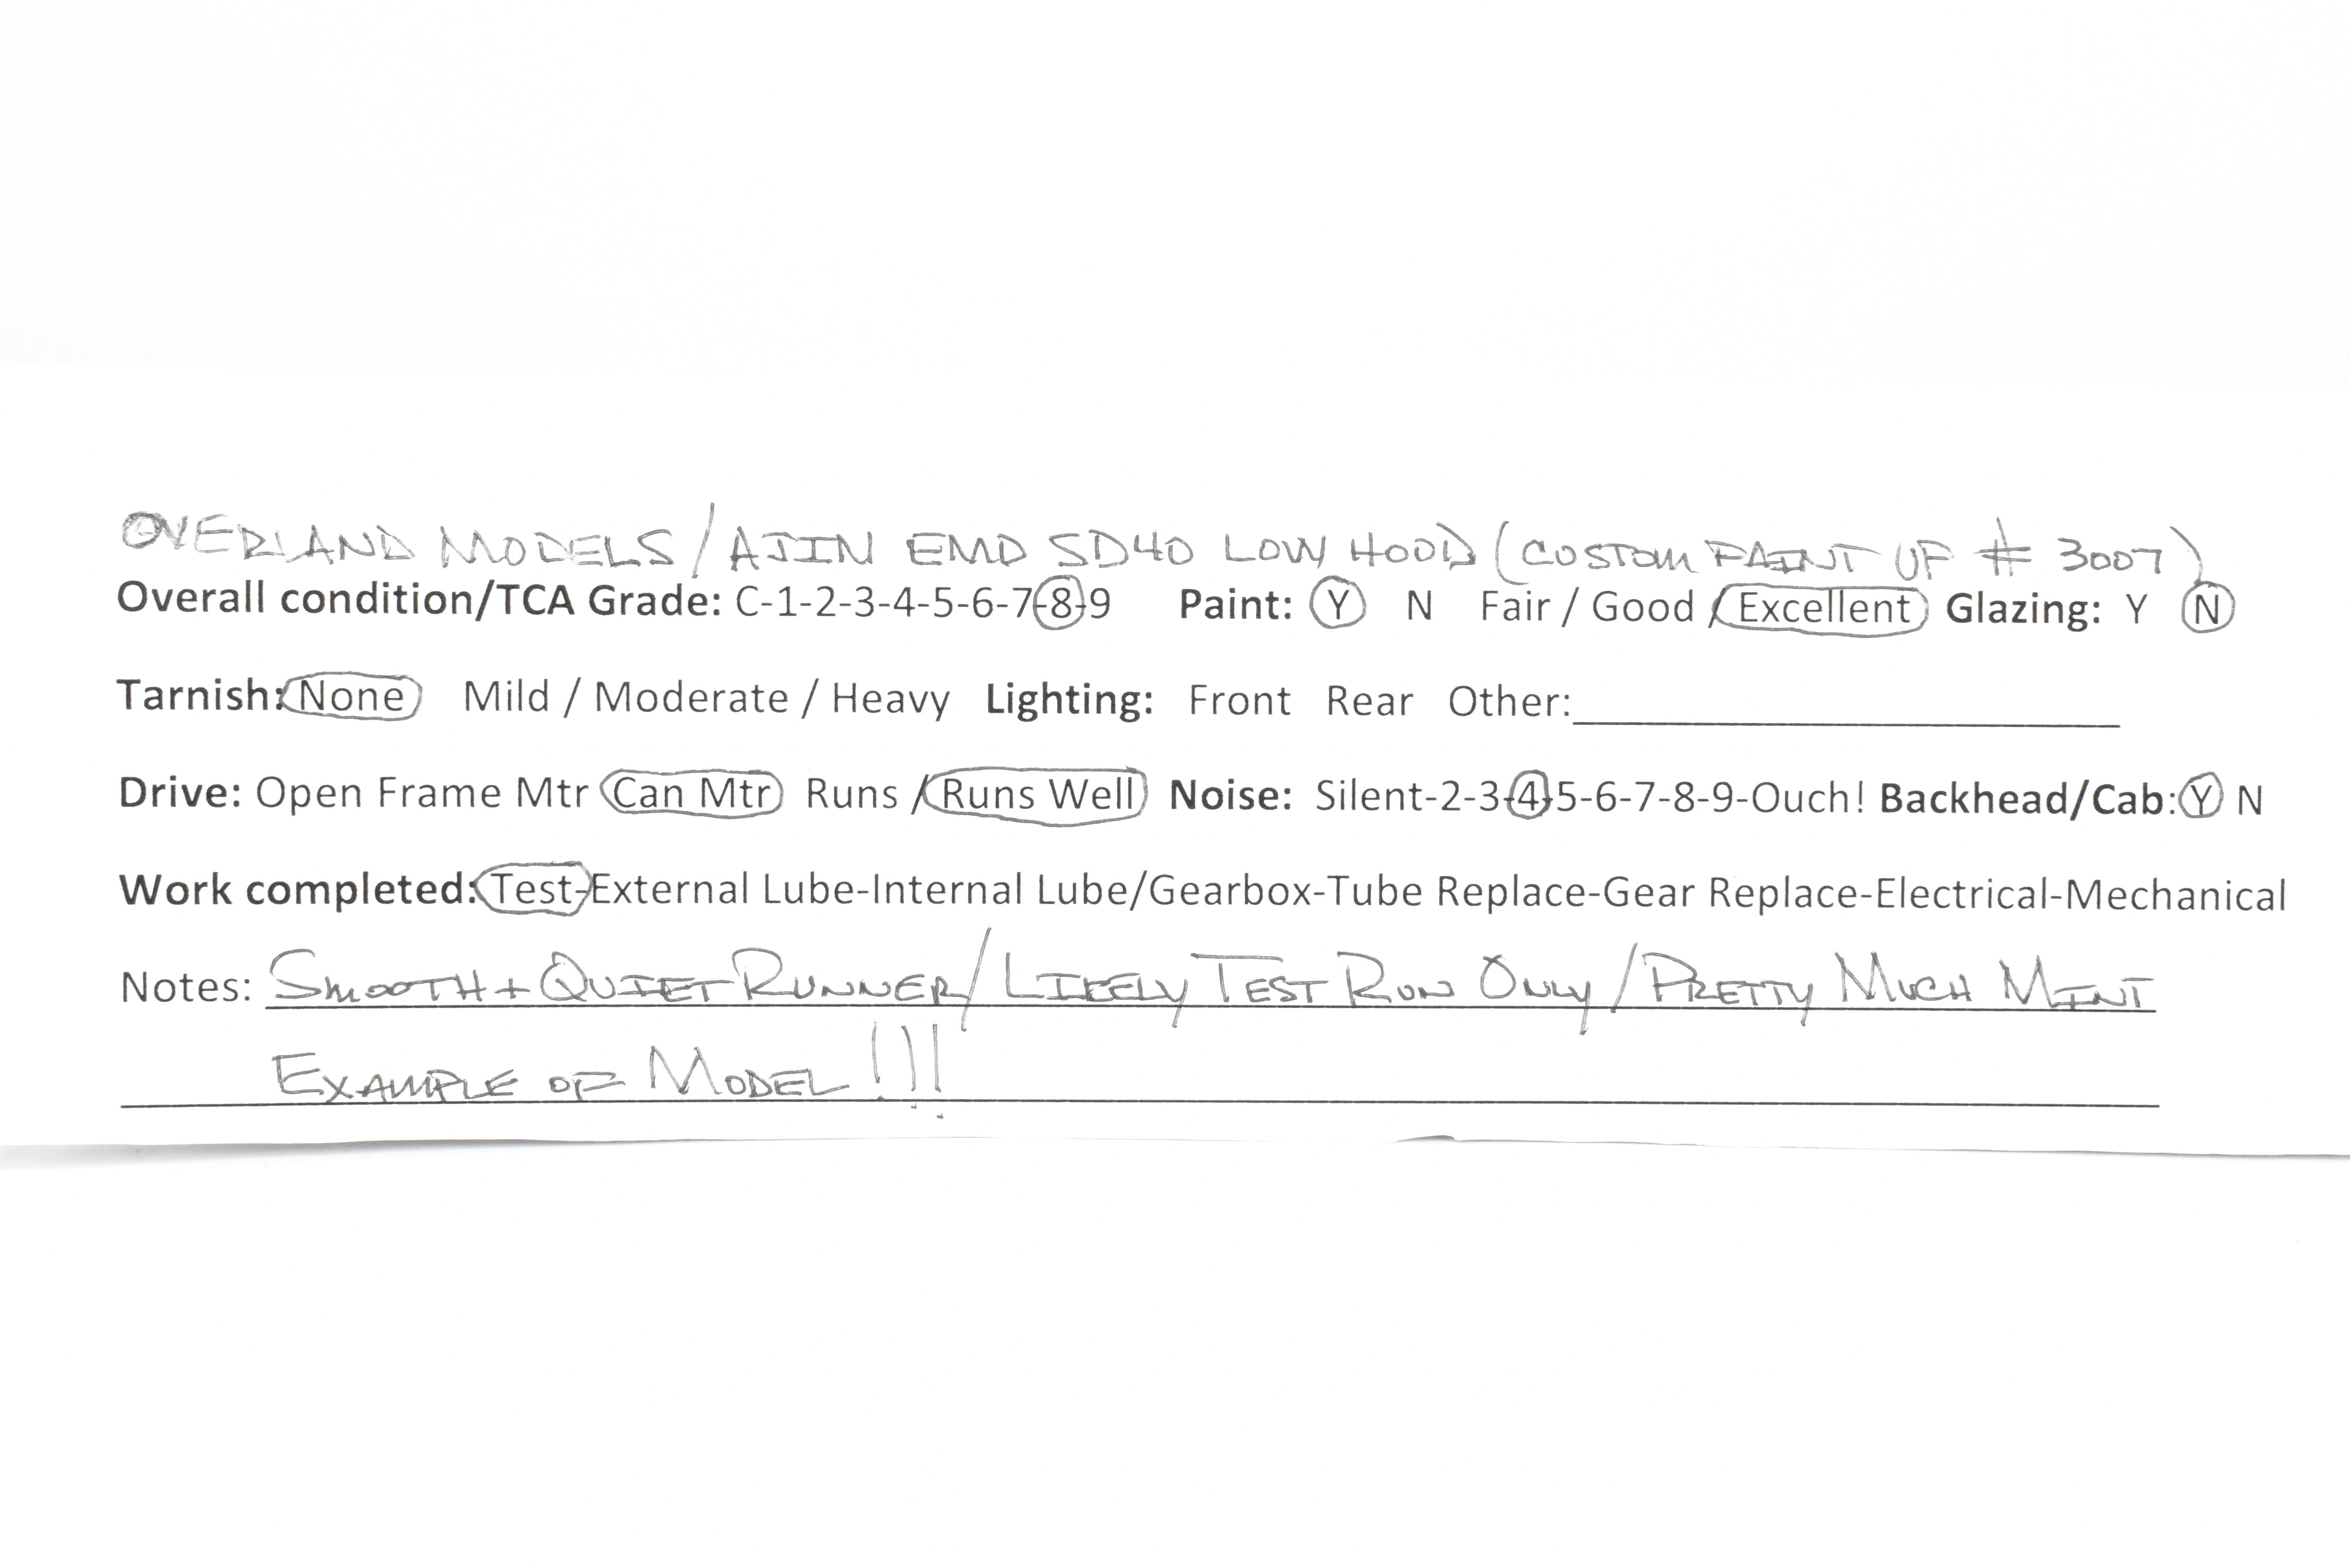 OVERLAND MODELS/AJIN EMD SD40 LOW HOOD (CUSTOM PAINT UP # 3007)
Overall condition/TCA Grade: C-1-2-3-4-5-6-7-8-9 Paint: Y N Fair / Good / Excellent Glazing: Y N
Tarnish: None Mild / Moderate / Heavy Lighting: Front Rear Other:
Drive: Open Frame Mtr Can Mtr Runs / Runs Well Noise: Silent-2-3-4-5-6-7-8-9-Ouch! Backhead/Cab: Y N
Work completed: Test-External Lube-Internal Lube/Gearbox-Tube Replace-Gear Replace-Electrical-Mechanical
Notes: SMOOTH + QUIET RUNNER/LIKELY TEST RUN ONLY/PRETTY MUCH MINT
EXAMPLE OF MODEL!!!